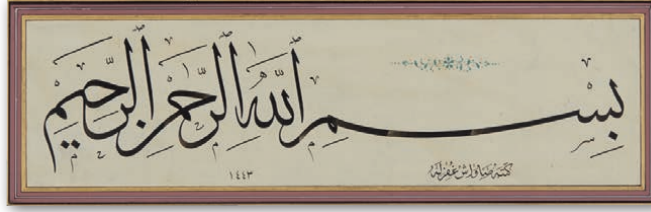 بِسْمِ اللهِ الرَّحْمٰنِ الرَّحِيمِ
كتبه صاواش غفرله
١٤٤٣